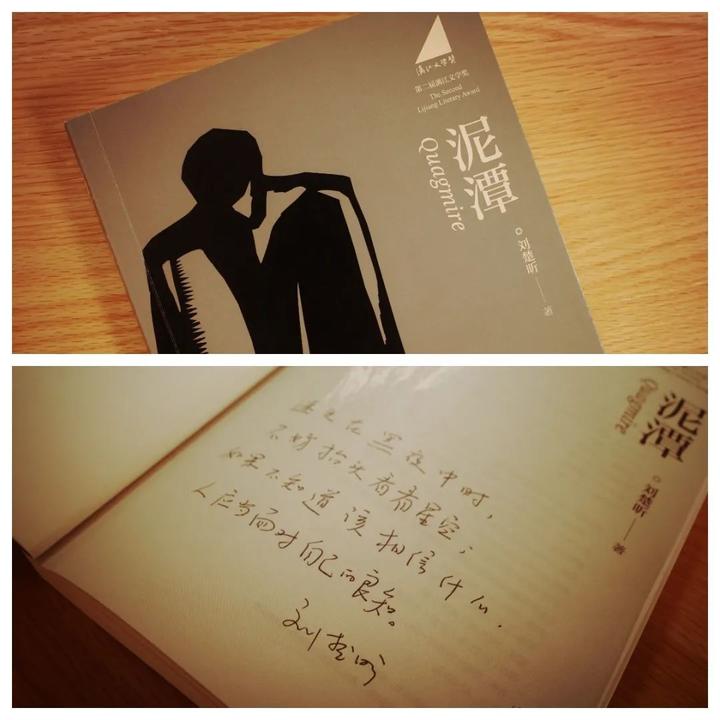 漓江文学奖
第二届漓江文学奖
The Second
Lijiang Literary Award
泥潭
Quagmire
刘楚昕
著
迷走在黑夜中时，
不妨抬头看看星空；
如果不知道该相信什么，
人应当面对自己的良知。
刘楚昕
泥潭
Quagmire
刘楚昕
著